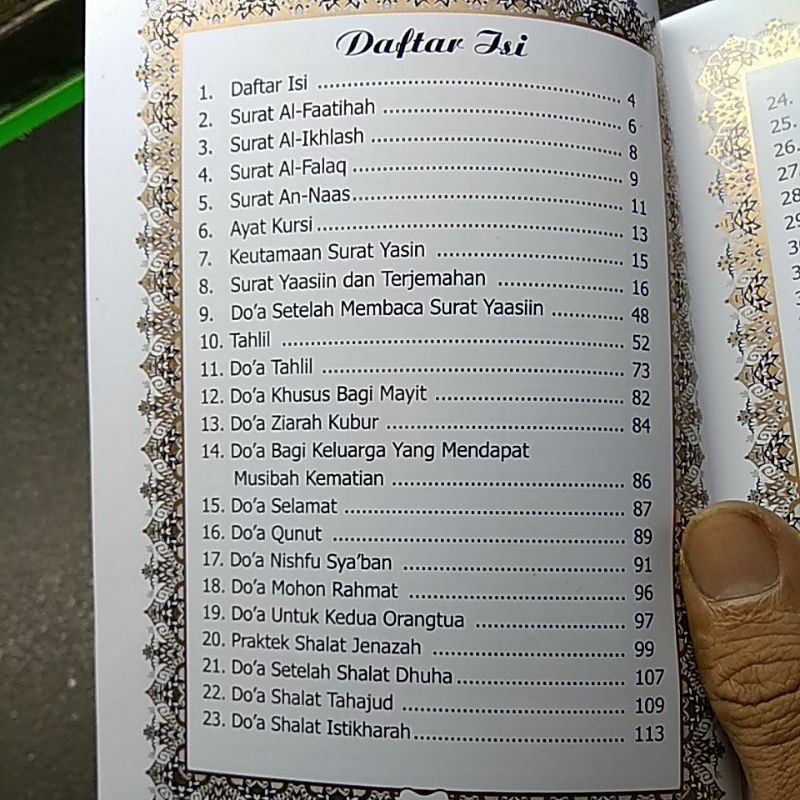 Daftar Isi
1. Daftar Isi ........ 4
2. Surat Al-Faatihah ........ 6
3. Surat Al-Ikhlash ........ 8
4. Surat Al-Falaq ........ 9
5. Surat An-Naas ........ 11
6. Ayat Kursi ........ 13
7. Keutamaan Surat Yasin ........ 15
8. Surat Yaasiin dan Terjemahan ........ 16
9. Do'a Setelah Membaca Surat Yaasiin ........ 48
10. Tahlil ........ 52
11. Do'a Tahlil ........ 73
12. Do'a Khusus Bagi Mayit ........ 82
13. Do'a Ziarah Kubur ........ 84
14. Do'a Bagi Keluarga Yang Mendapat
Musibah Kematian ........ 86
15. Do'a Selamat ........ 87
16. Do'a Qunut ........ 89
17. Do'a Nishfu Sya'ban ........ 91
18. Do'a Mohon Rahmat ........ 96
19. Do'a Untuk Kedua Orangtua ........ 97
20. Praktek Shalat Jenazah ........ 99
21. Do'a Setelah Shalat Dhuha ........ 107
22. Do'a Shalat Tahajud ........ 109
23. Do'a Shalat Istikharah ........ 113
24.
25.
26.
27
28